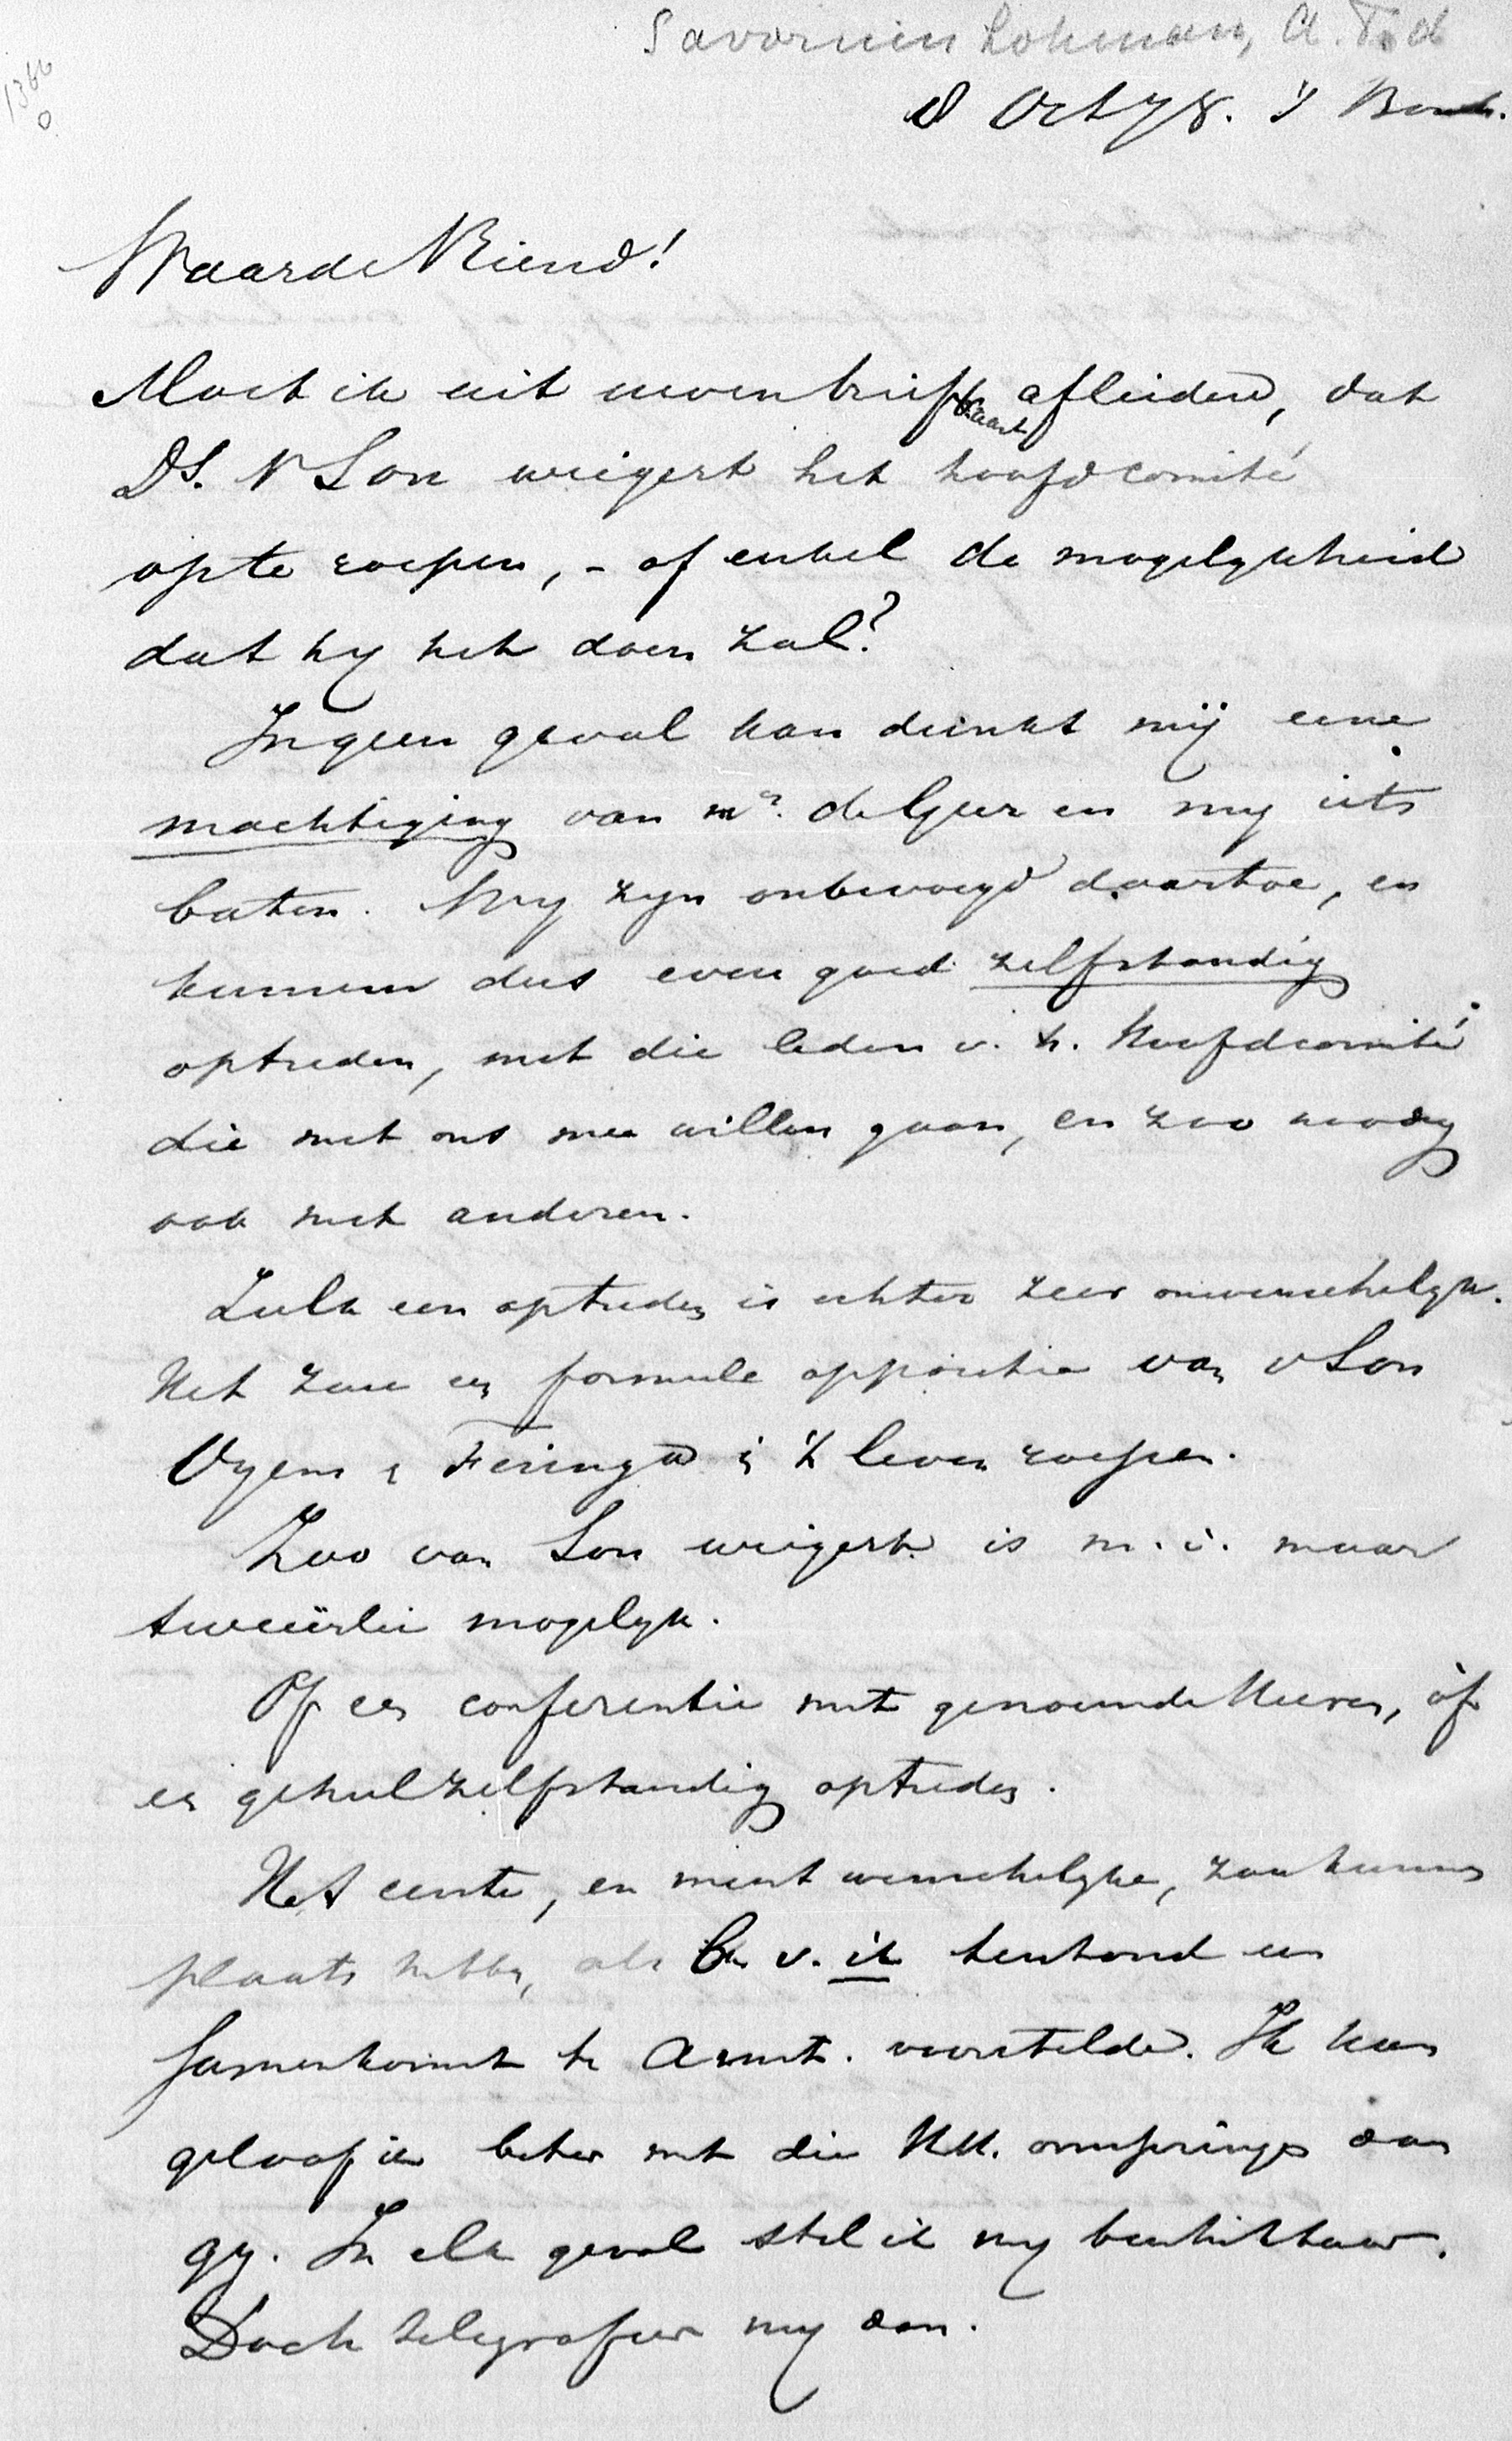 Savornin Lohman, A. F. d
1366
0
8 Oct 78. 's Bosch.
Waarde Vriend!
Moet ik uit uwen briefkaart afleiden, dat
Ds. v Son weigert het hoofdcomité
opte roepen, - of enkel de mogelykheid
dat hy het doen zal?
In geen geval kan dunkt mij eene
machtiging van mr. de Geer en my iets
baten. Wy zyn onbevoegd daartoe, en
kunnen dus even goed zelfstandig
optreden, met die leden v. h. Hoofdcomité
die met ons mee willen gaan, en zoo noodig
ook met anderen.
Zulk een optreden is echter zeer onwenschelyk.
Het zou een formeele oppositie van v Son
Oyens & Feringa in 't leven roepen.
Zoo van Son weigert is m. i. maar
tweeërlei mogelyk.
Of een conferentie met genoemde Heeren, òf
een geheel zelfstandig optreden.
Het eerste, en meest wenschelyke, zou kunnen
plaats hebben, als b. v. ik terstond een
samenkomst te Amst. voorstelde. Ik kan
geloof ik beter met die HH. omspringen dan
gy. In elk geval stel ik my beschikbaar.
Doch telegrafeer my dan.